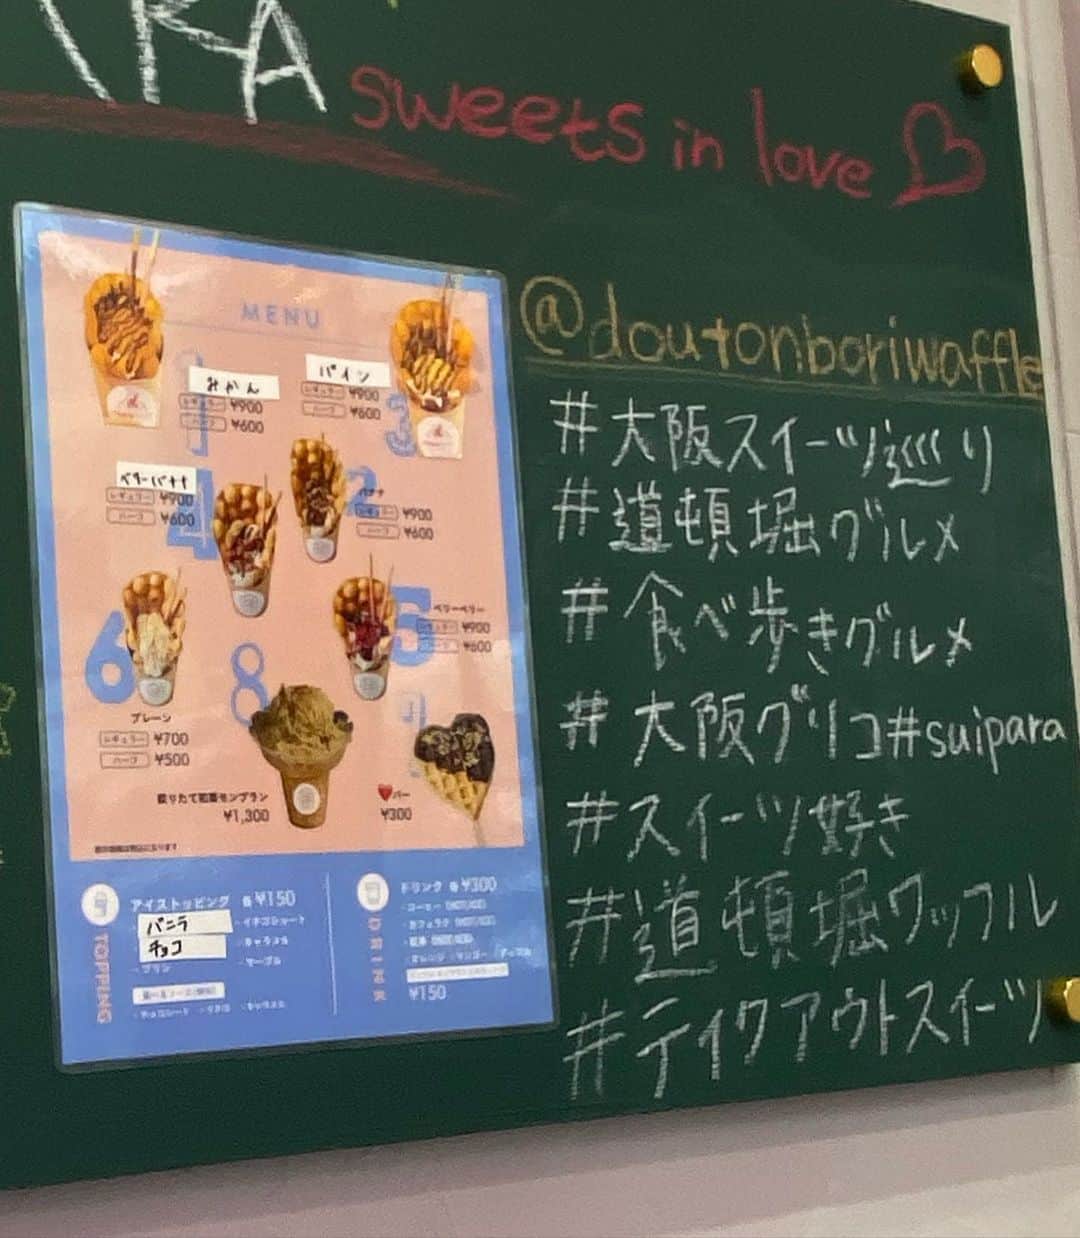 sweets in love
@doutonboriwaffle
#大阪スイーツ巡り
#道頓堀グルメ
#食べ歩きグルメ
#大阪グリコ#suipara
#スイーツ好き
#道頓堀ワッフル
#テイクアウトスイーツ
MENU
1
みかん
レギュラー ¥900
ハーフ ¥600
パイン
レギュラー ¥900
ハーフ ¥600
3
4
レギュラー ¥900
ハーフ ¥600
2
バナナ
レギュラー ¥900
ハーフ ¥600
5
ベリーベリー
レギュラー ¥900
ハーフ ¥600
6
プレーン
レギュラー ¥700
ハーフ ¥500
8
絞りたて和栗モンブラン
¥1,300
❤バー
¥300
TOPPING
アイストッピング 各¥150
バニラ
チョコ
・プリン
・キャラメル
・マーブル
DRINK
ドリンク 各¥300
・コーヒー (HOT/ICE)
・カフェラテ (HOT/ICE)
・紅茶 (HOT/ICE)
・オレンジ ・マンゴー ・アップル
¥150